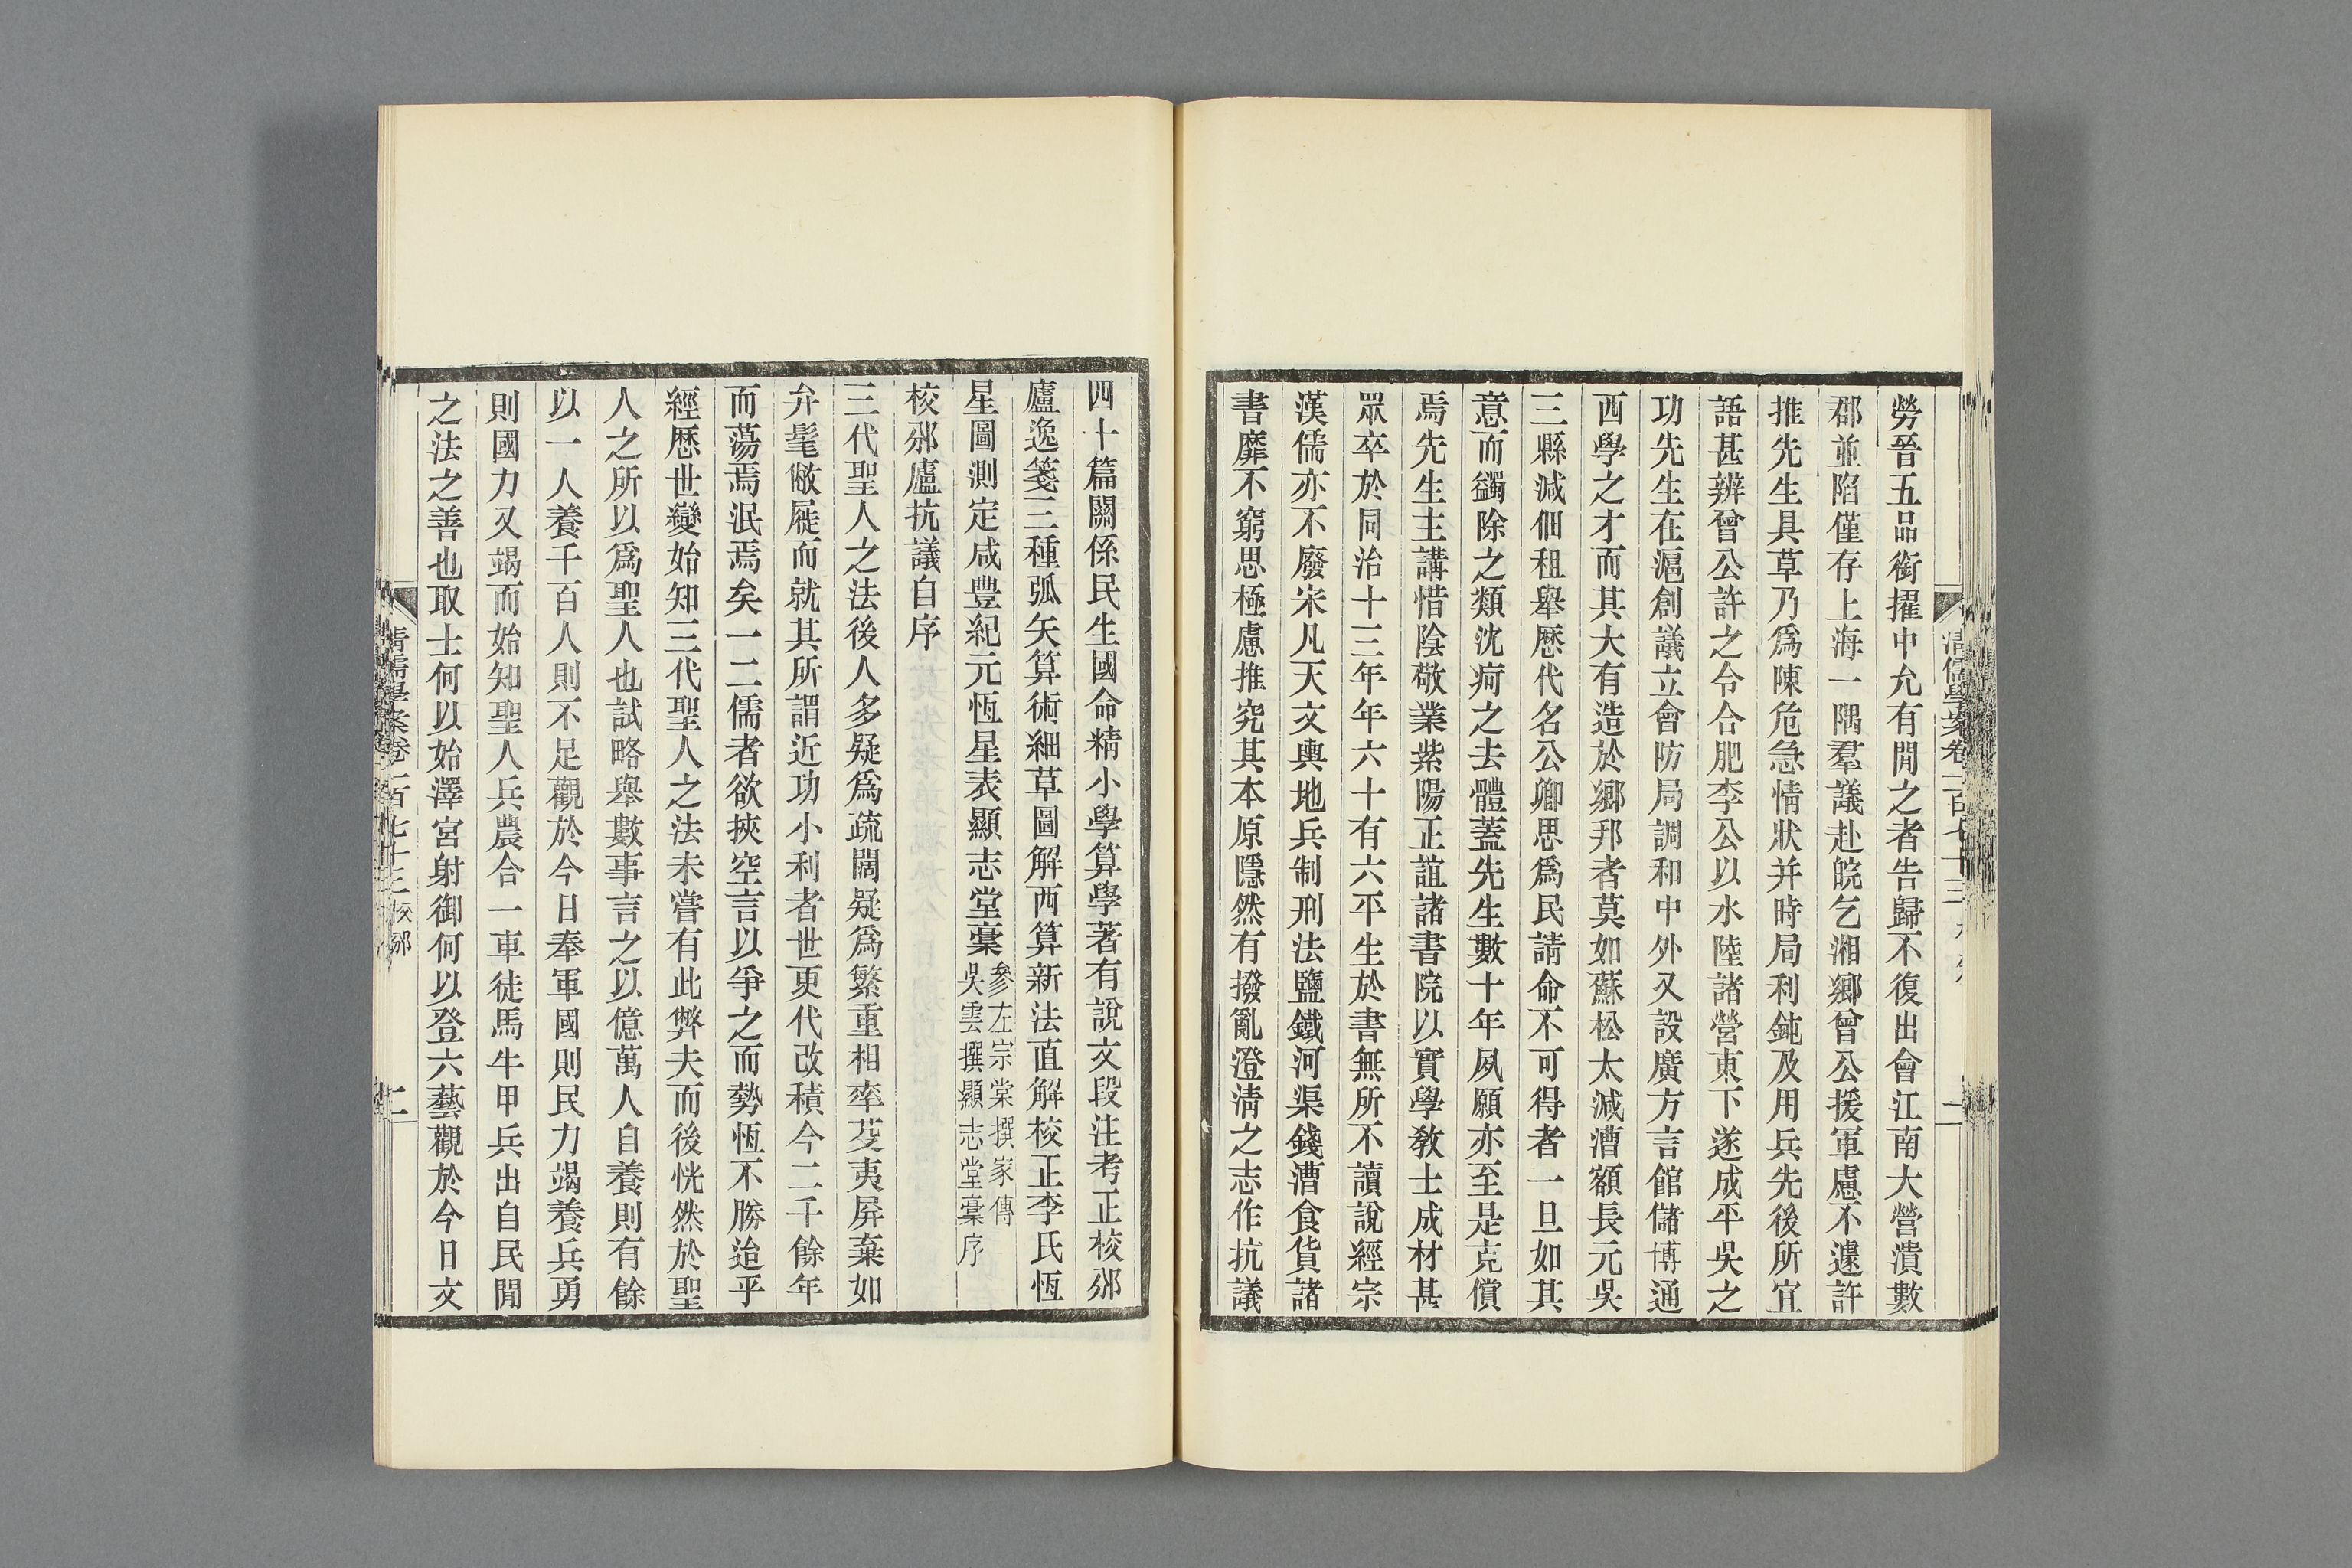 勞晉五品銜擢中允有閒之者告歸不復出會江南大營潰數
郡並陷僅存上海一隅羣議赴皖乞湘鄉曾公援軍慮不遽許
推先生具草乃爲陳危急情狀并時局利鈍及用兵先後所宜
語甚辨曾公許之令合肥李公以水陸諸營東下遂成平吳之
功先生在滬創議立會防局調和中外又設廣方言館儲博通
西學之才而其大有造於鄉邦者莫如蘇松太減漕額長元吳
三縣減佃租舉歷代名公卿思爲民請命不可得者一旦如其
意而蠲除之類沈疴之去體蓋先生數十年夙願亦至是克償
焉先生主講惜陰敬業紫陽正誼諸書院以實學敎士成材甚
眾卒於同治十三年年六十有六平生於書無所不讀說經宗
漢儒亦不廢宋凡天文輿地兵制刑法鹽鐵河渠錢漕食貨諸
書靡不窮思極慮推究其本原隱然有撥亂澄淸之志作抗議
四十篇關係民生國命精小學算學著有說文段注考正校邠
廬逸箋三種弧矢算術細草圖解西算新法直解校正李氏恆
星圖測定咸豐紀元恆星表顯志堂稾參左宗棠撰家傳
吳雲撰顯志堂稾序
校邠廬抗議自序
三代聖人之法後人多疑爲疏闊疑爲繁重相率芟夷屏棄如
弁髦敝屣而就其所謂近功小利者世更代改積今二千餘年
而蕩焉泯焉矣一二儒者欲挾空言以爭之而勢恆不勝迨乎
經歷世變始知三代聖人之法未嘗有此弊夫而後恍然於聖
人之所以爲聖人也試略舉數事言之以億萬人自養則有餘
以一人養千百人則不足觀於今日奉軍國則民力竭養兵勇
則國力又竭而始知聖人兵農合一車徒馬牛甲兵出自民閒
之法之善也取士何以始澤宮射御何以登六藝觀於今日文
淸儒學案卷一百七十三 校邠
二